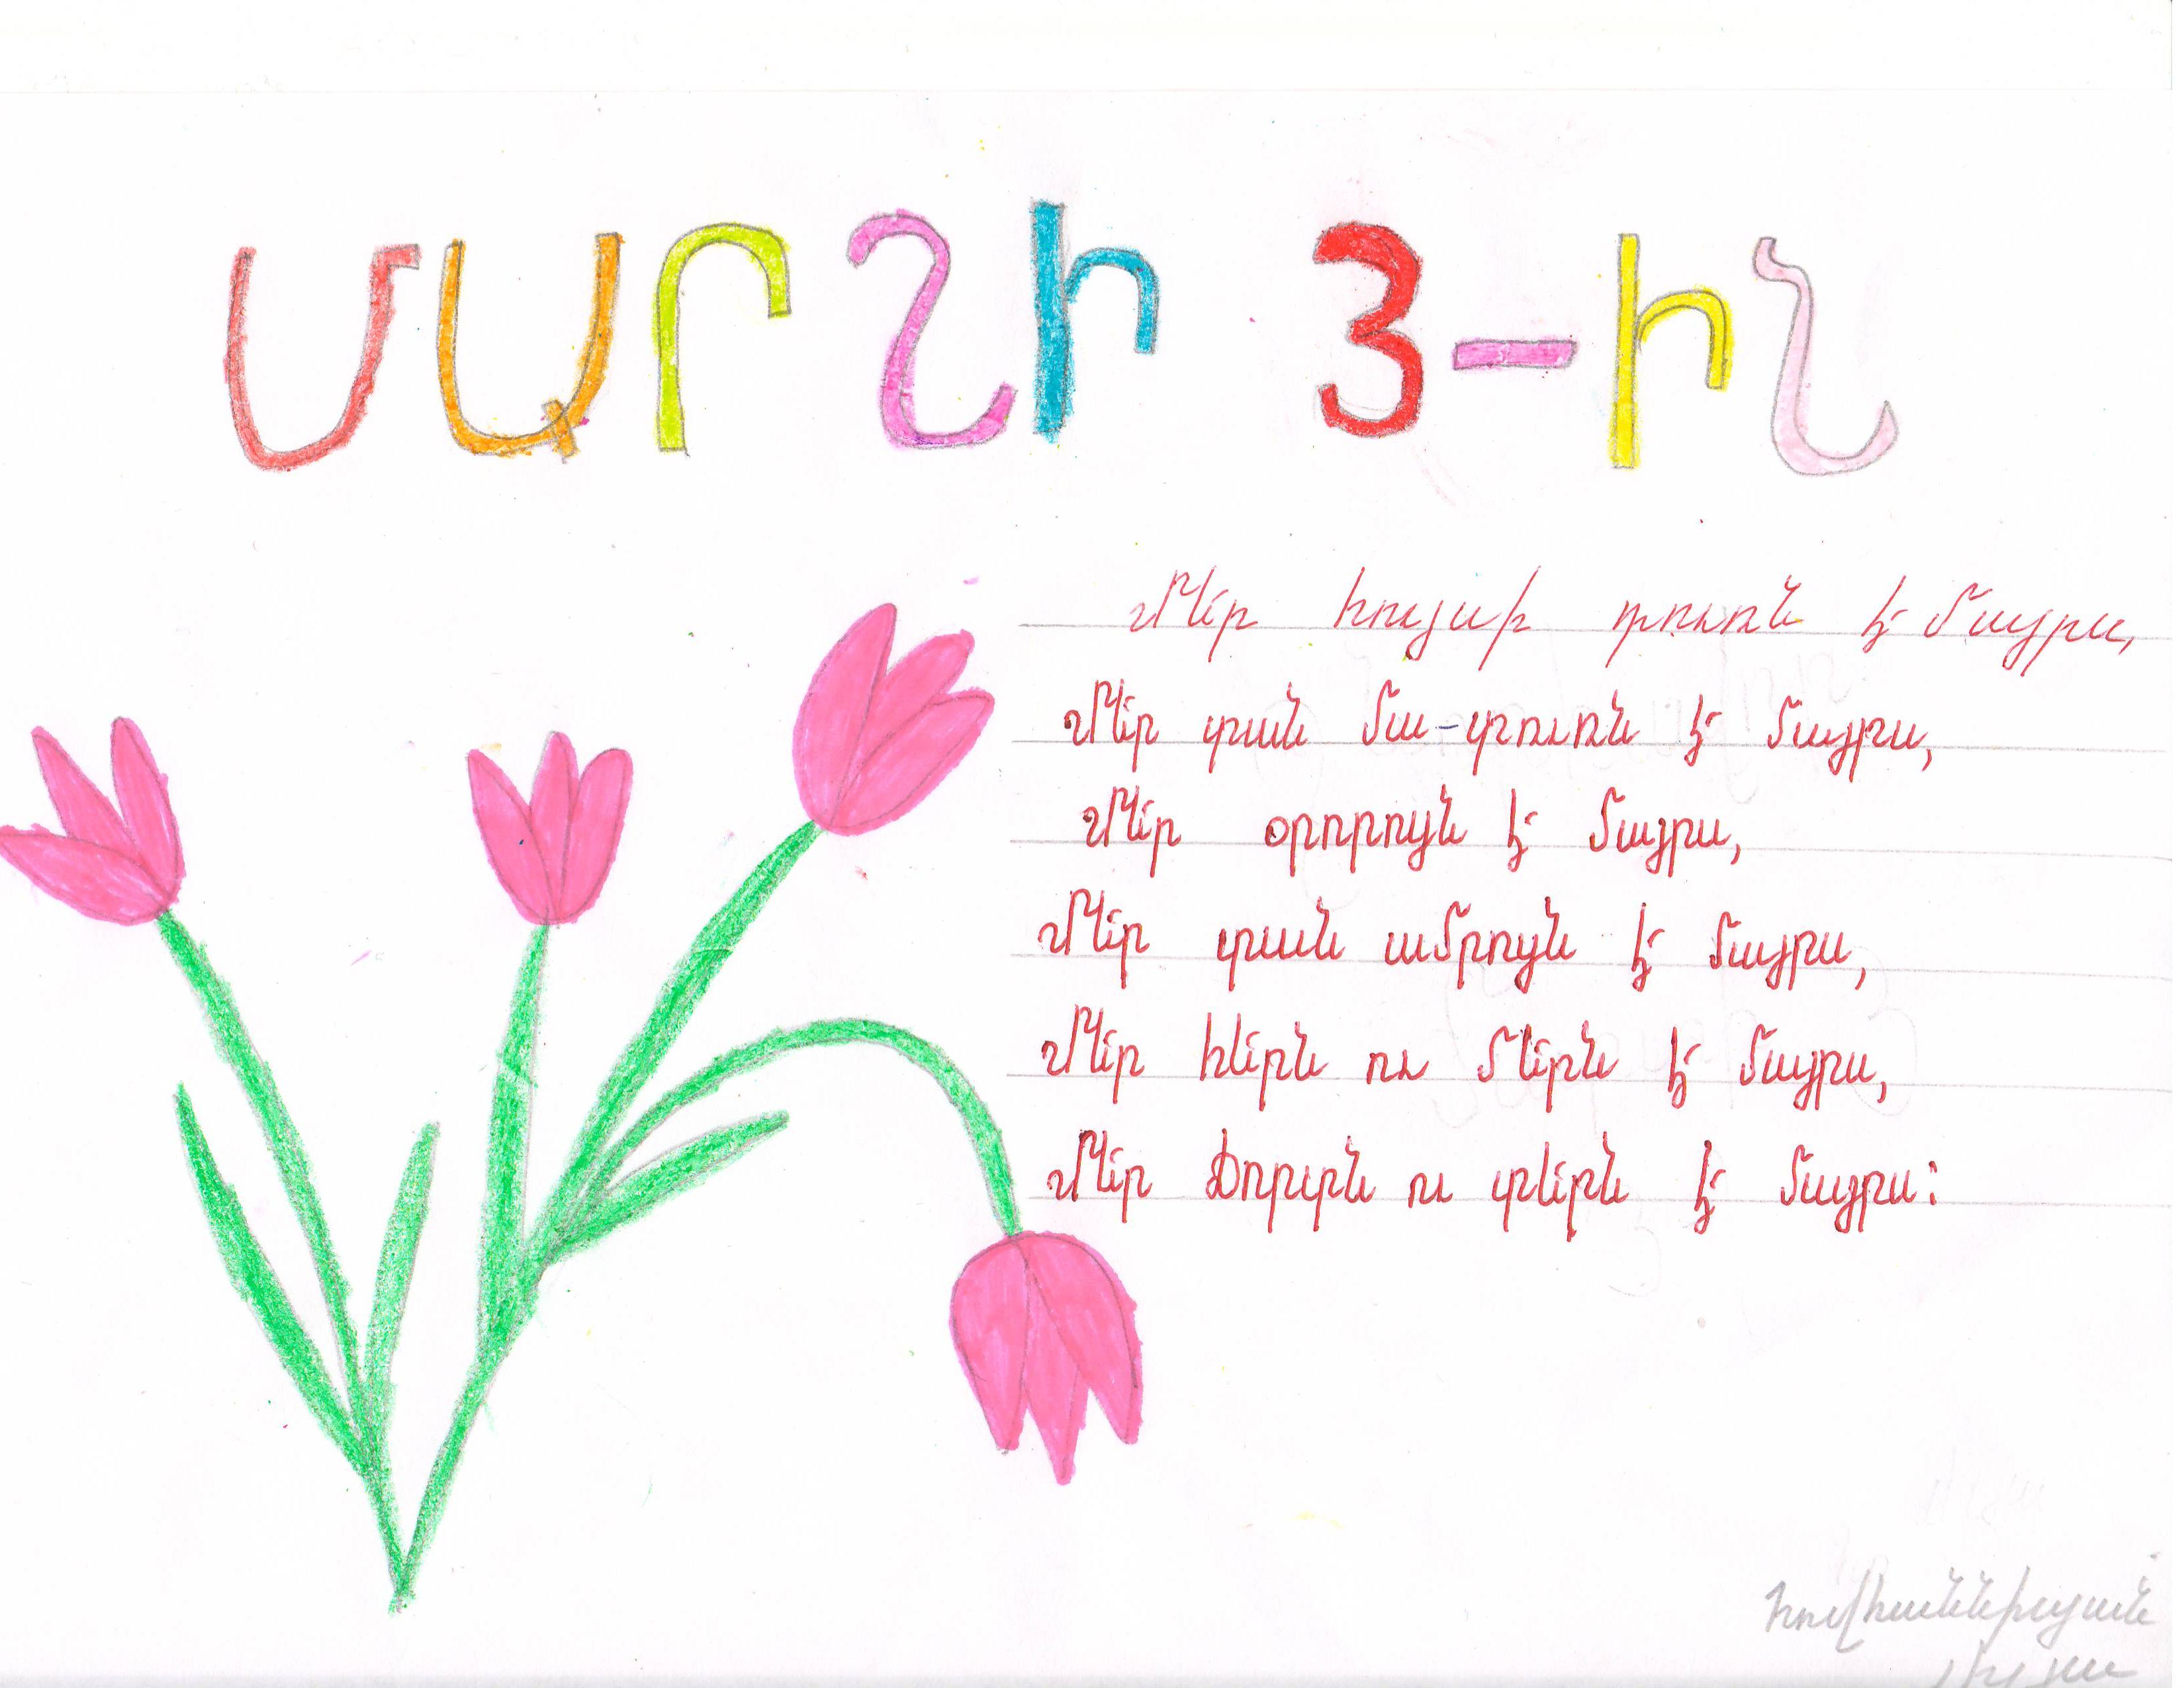 ՄԱՐՏԻ 3-ԻՆ
Մեր հույսի դուռն է մայրս,
Մեր տան մա-տուռն է մայրս,
Մեր օրորոցն է մայրս,
Մեր տան ամրոցն է մայրս,
Մեր հերն ու մերն է մայրս,
Մեր ճորտն ու տերն է մայրս:
Հովհաննիսյան